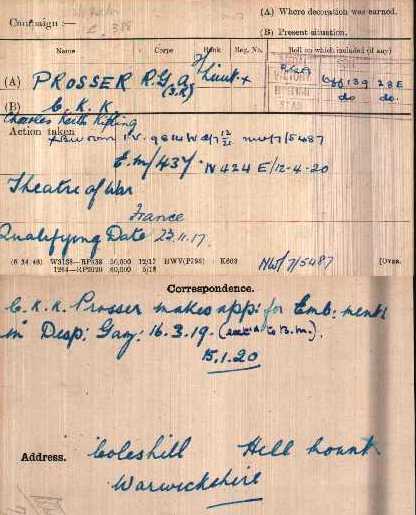 (A) Where decoration was earned.
Campaign :—
(B) Present situation.
Name Corps Rank Reg. No. Roll on which included (if any)
(A) PROSSER R.G.A. Lieut.
(S.R)
VICTORY Off 139 28 E
BRITISH do. do.
STAR
(B) C. K. K.
Charles Keith Kipling
Action taken
I.V. 9814 NW/7/5487
E.M/437. N424 E/12-4-20
Theatre of War
France
Qualifying Date 23.11.17.
NW/7/5487
(6 34 46) W3158—RP938 50,000 12/17 HWV(P298) K608 [Over.
1264—RP2020 60,000 5/18
Correspondence.
C. K. K. Prosser makes app: for Emb: ment:
in Desp: Gaz: 16.3.19. ( to B.M.).
15.1.20
Address. Coleshill Hill
Warwickshire